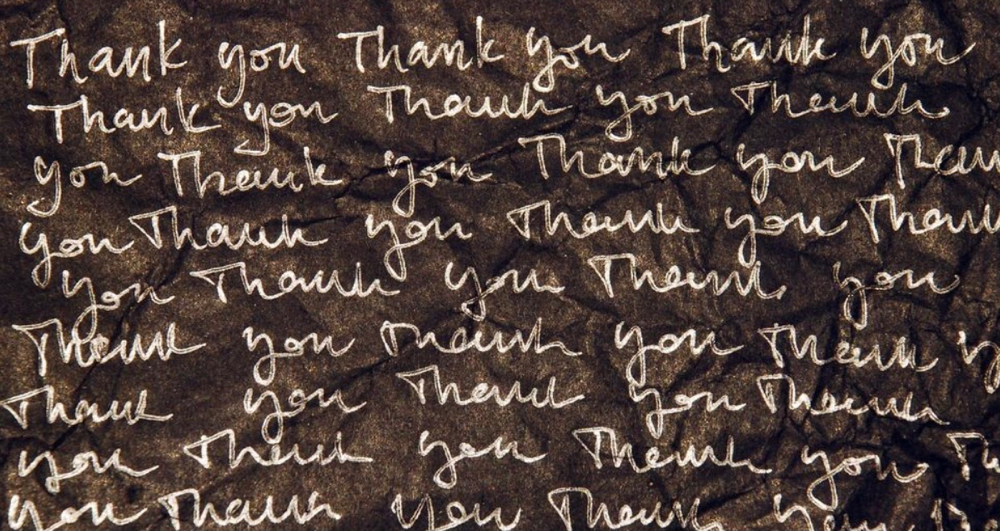 Thank you Thank you Thank you
Thank you Thank you Thank
you Thank you Thank you Than
you Thank you Thank you Thank
you Thank you Thank you
Thank you Thank you Thank y
Thank you Thank you Thank
you Thank you Thank you Th
you Thank you Thank you